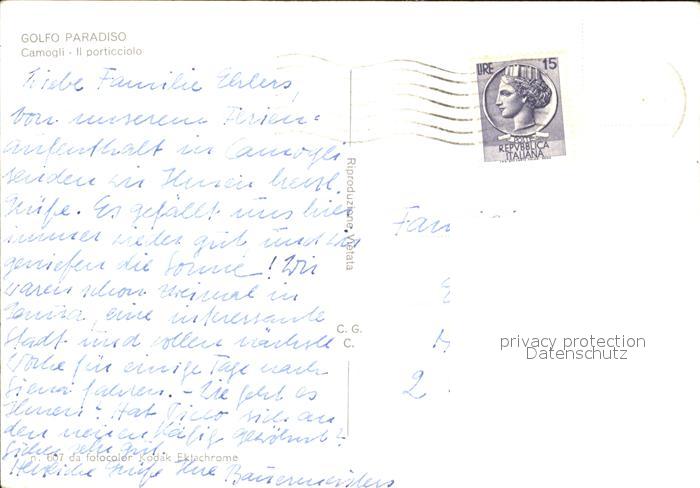 GOLFO PARADISO
Camogli - Il porticciolo
Liebe Familie Ehlers,
Von unserem Ferien-
aufenthalt in Camogli
senden wir Ihnen herzl.
Grüße. Es gefällt uns hier
immer wieder gut und wir
genießen die Sonne! Wir
waren schon zweimal in
Genua, eine interessante
Stadt und wollen nächste
Woche für einige Tage nach
Siena fahren. - Wie geht es
Ihnen? Hat sich an
den neuen Käfig gewöhnt?
sehr gut.
Herzliche Grüße Ihre Bauermeisters
n. 607 da fotocolor Kodak Ektachrome
Riproduzione Vietata
C. G.
C.
LIRE 15
POSTE
REPVBBLICA
ITALIANA
Fam
E
2
privacy protection
Datenschutz